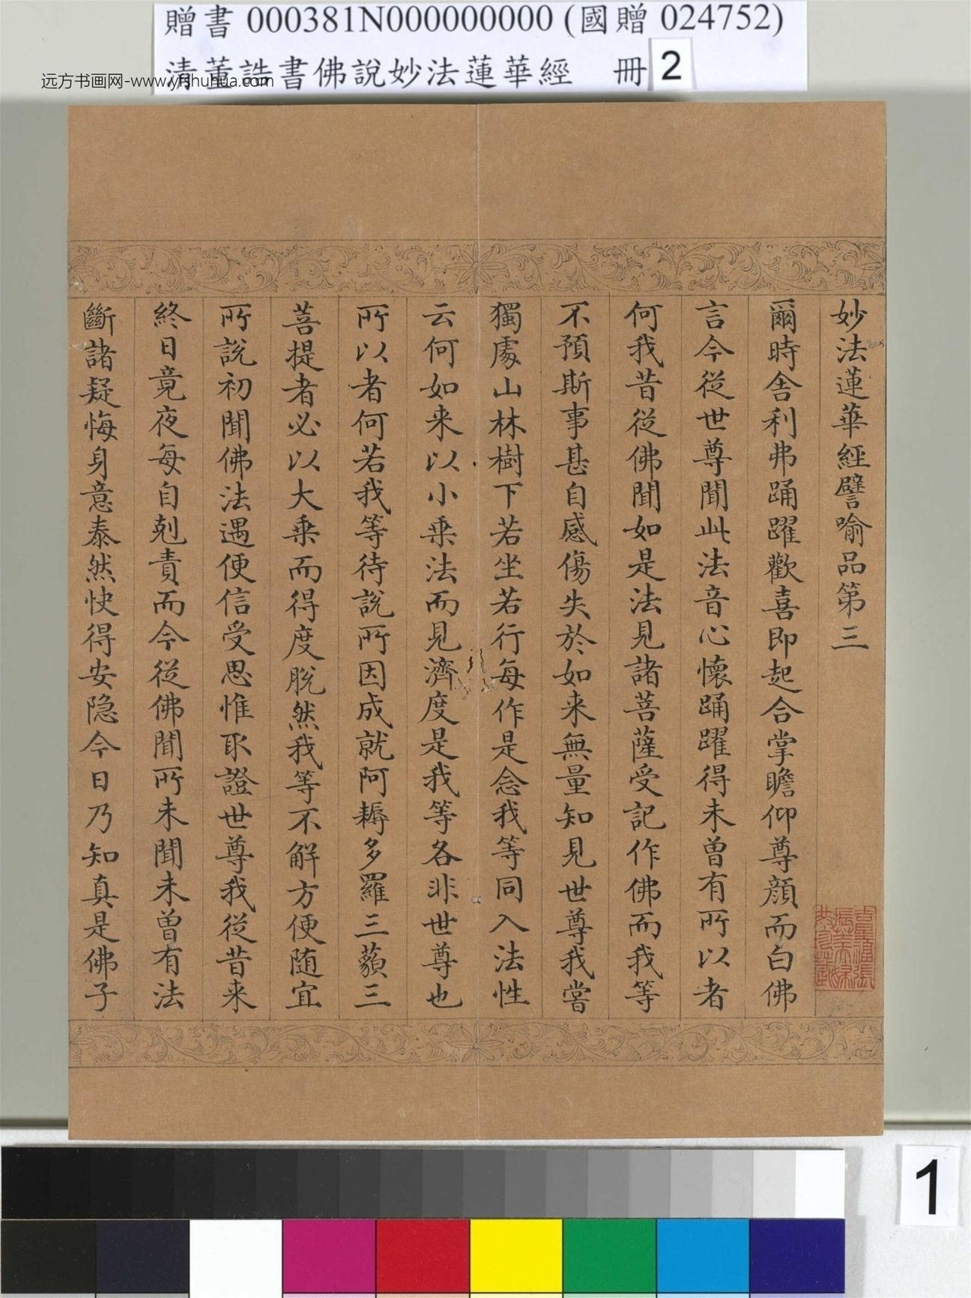 贈書 000381N000000000 (國贈 024752)
清董誥書佛說妙法蓮華經 冊 2
远方书画网-www.yfshuhua.com
妙法蓮華經譬喻品第三
爾時舍利弗踊躍歡喜即起合掌瞻仰尊顏而白佛
言今從世尊聞此法音心懷踊躍得未曾有所以者
何我昔從佛聞如是法見諸菩薩受記作佛而我等
不預斯事甚自感傷失於如来無量知見世尊我嘗
獨處山林樹下若坐若行每作是念我等同入法性
云何如来以小乗法而見濟度是我等各非世尊也
所以者何若我等待說所因成就阿耨多羅三藐三
菩提者必以大乗而得度脫然我等不解方便随宜
所說初聞佛法遇便信受思惟取證世尊我從昔来
終日竟夜每自剋責而今從佛聞所未聞未曾有法
斷諸疑悔身意泰然快得安隐今日乃知真是佛子
1